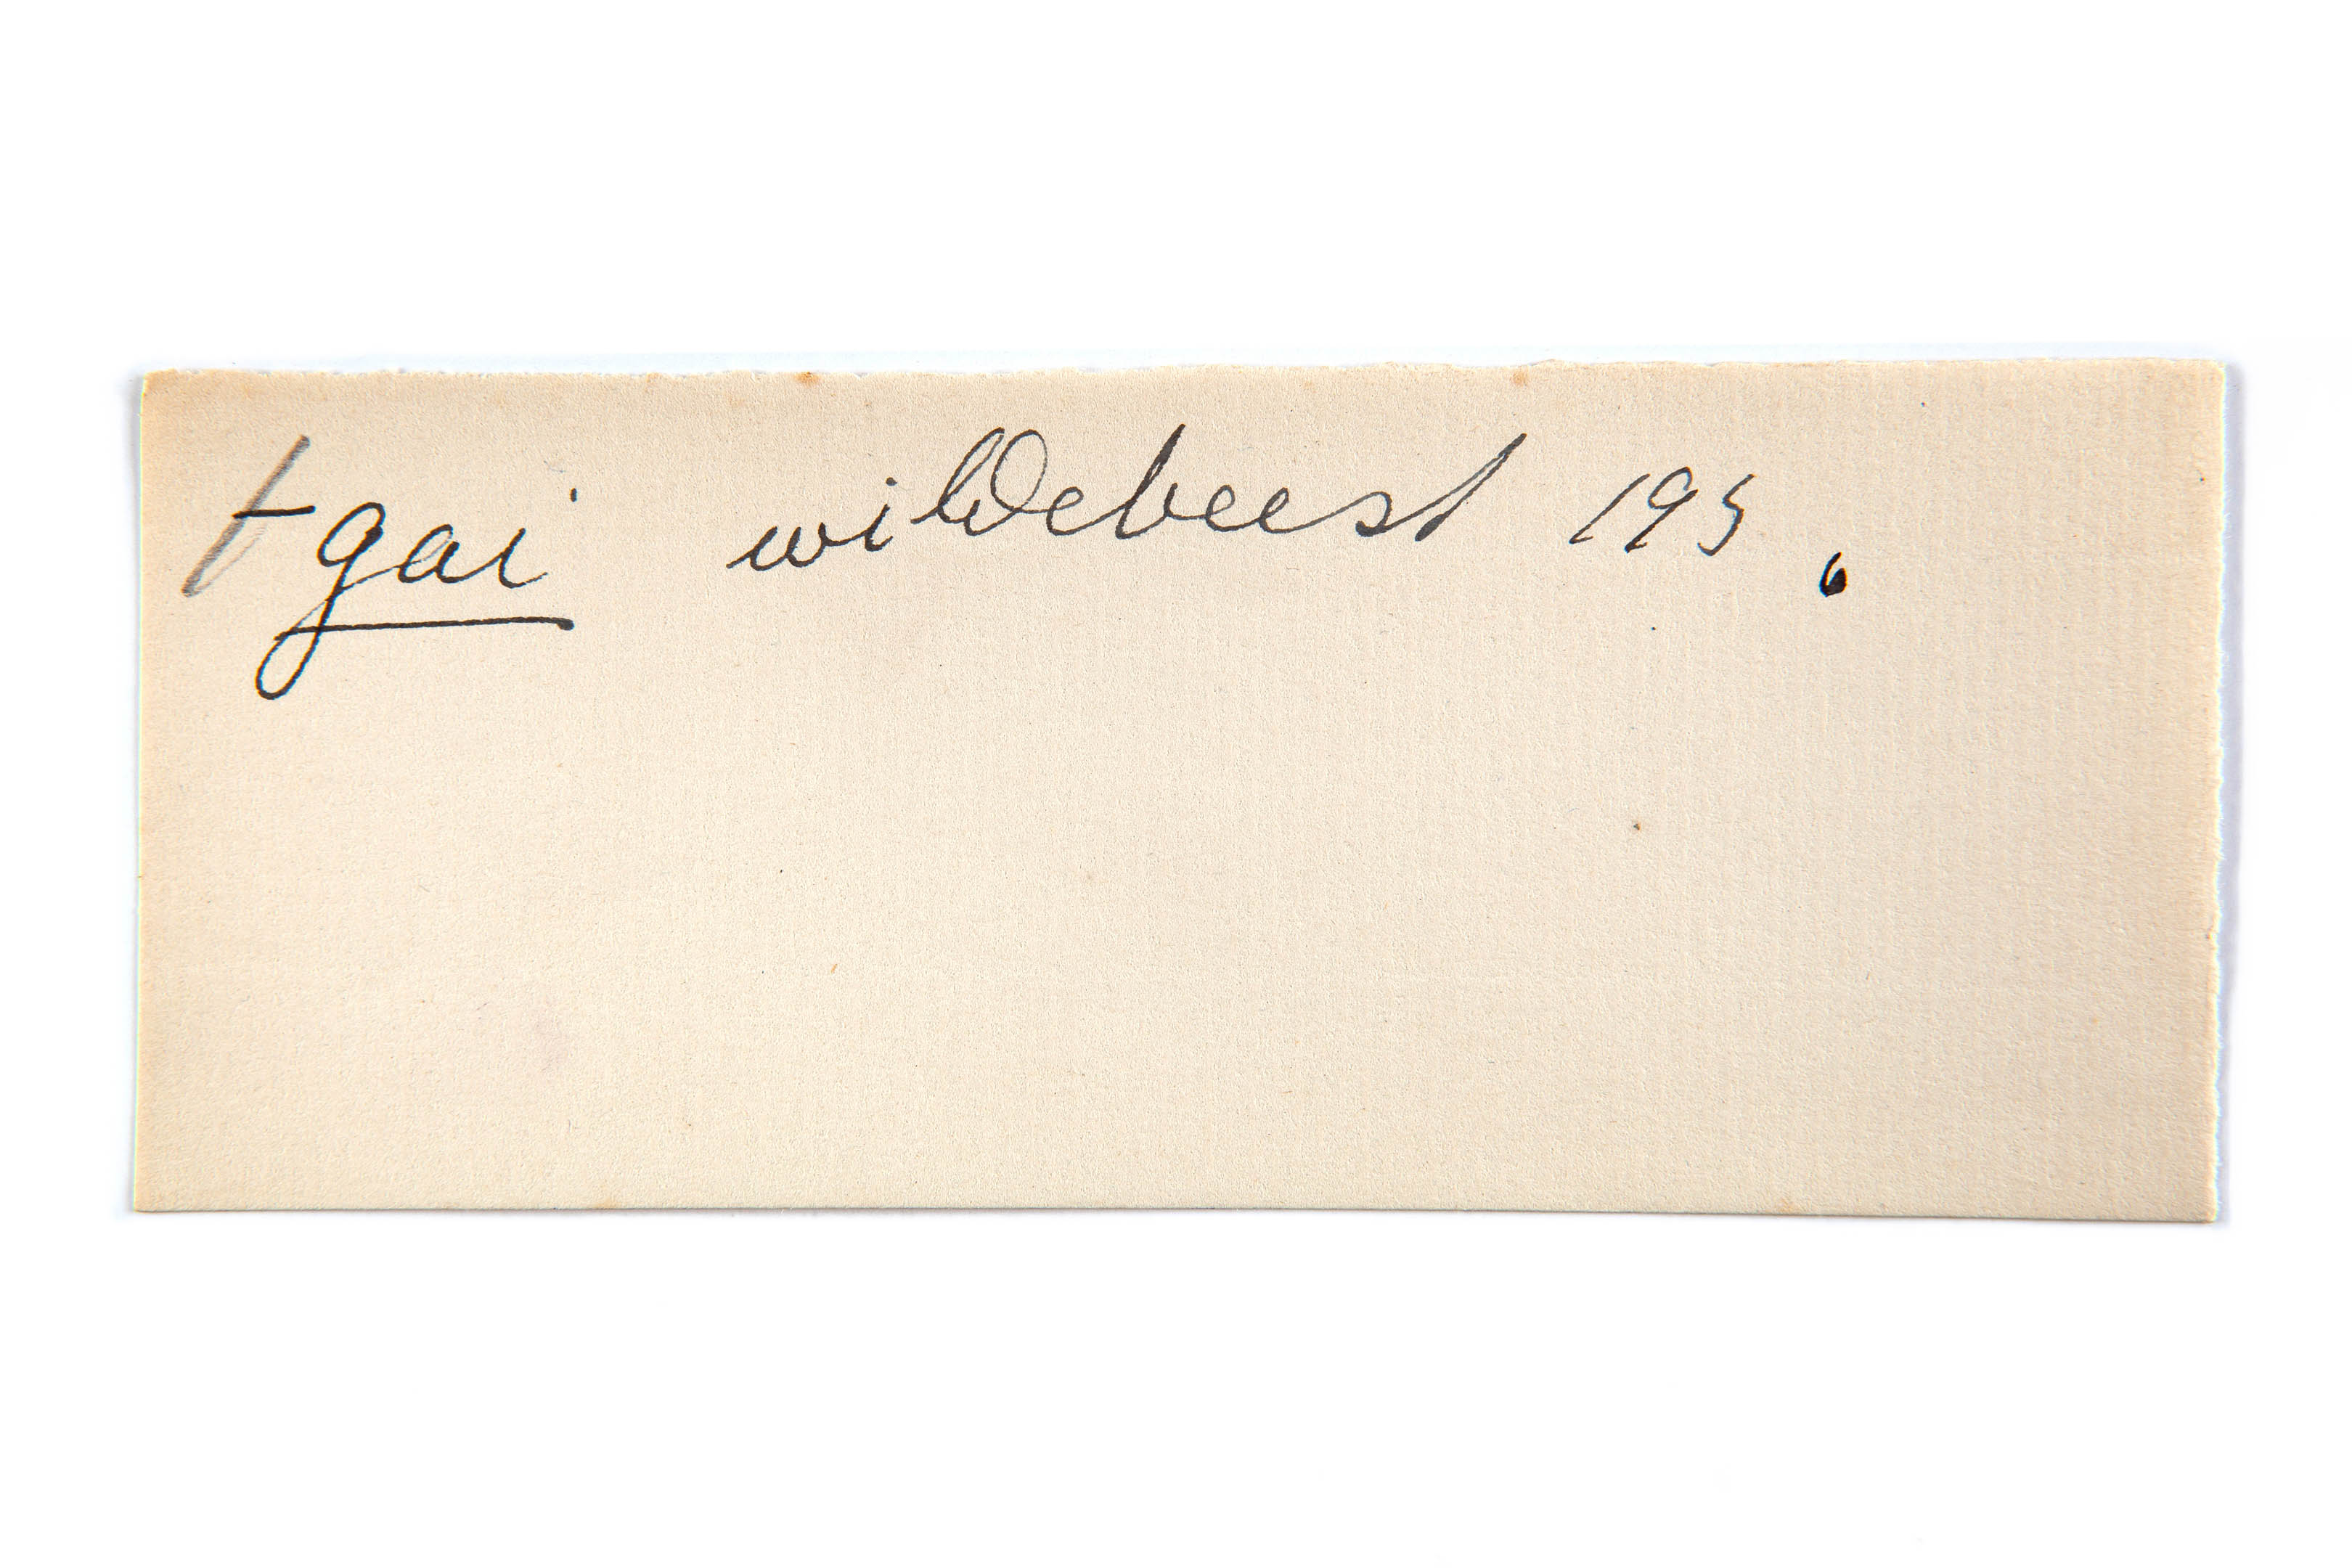 ǂgai wildebeest 195.